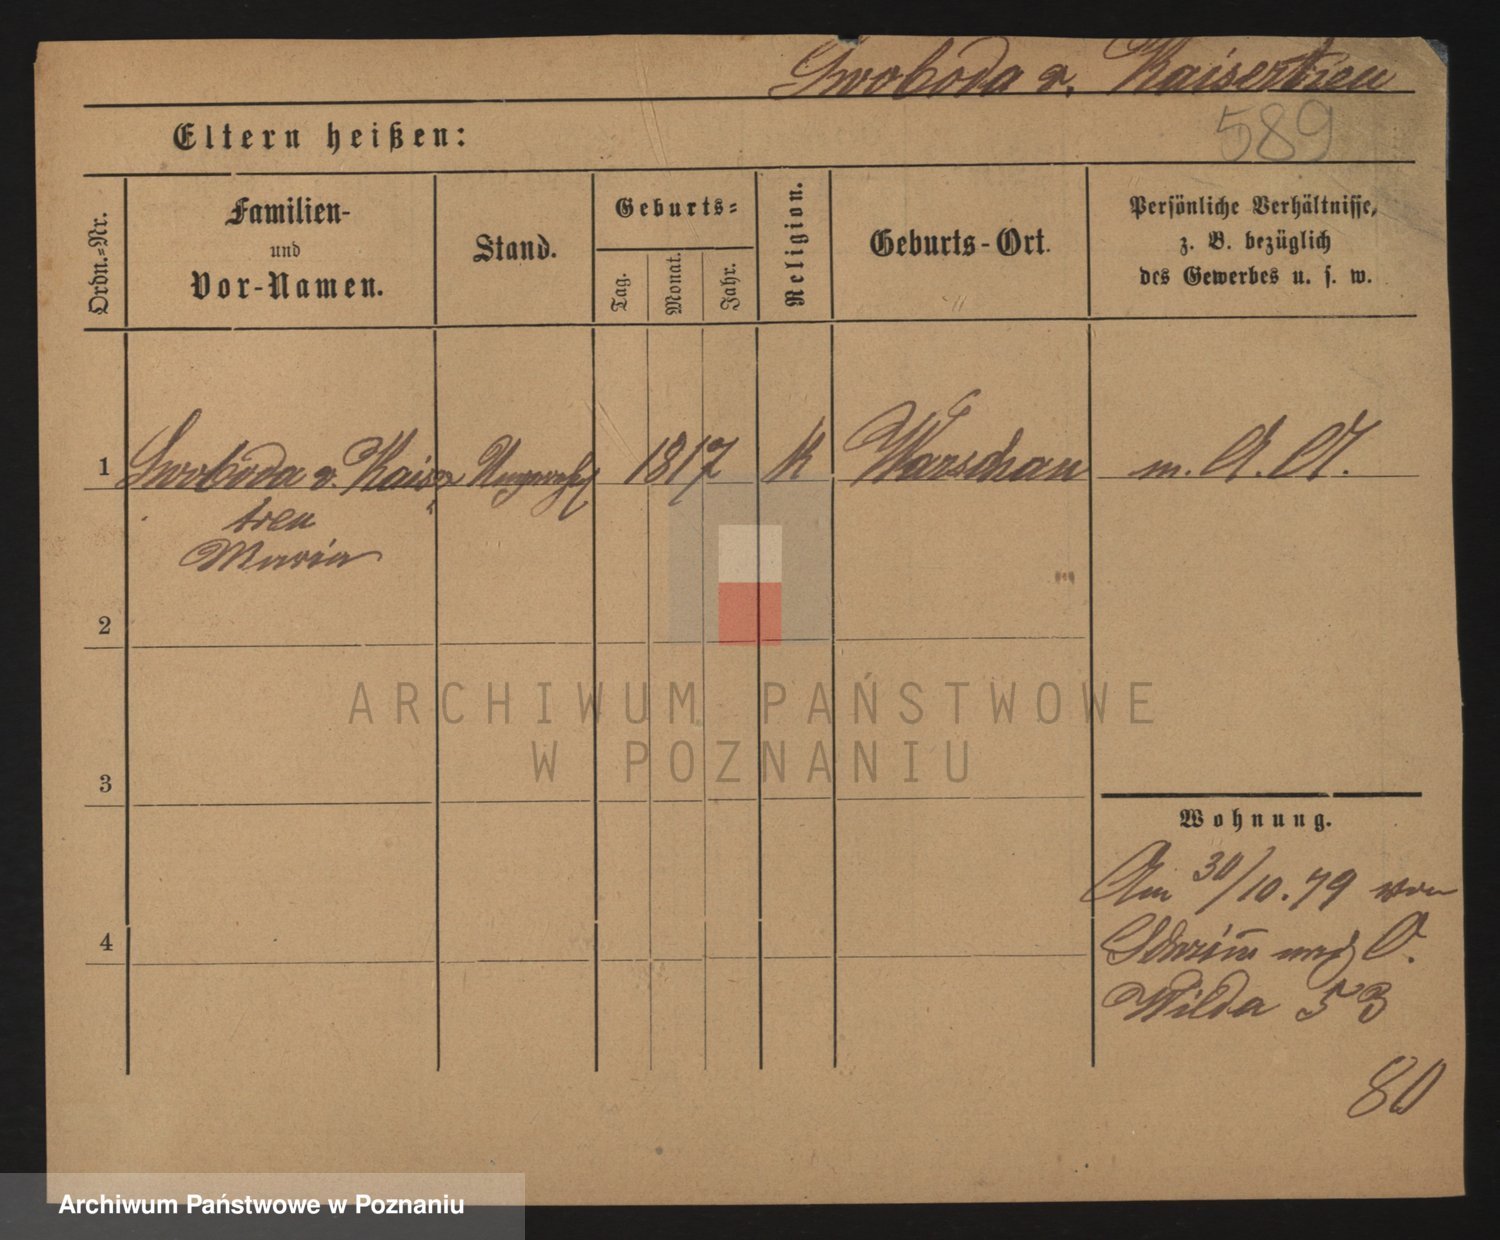 Swoboda v. Kaisertreu
589
Eltern heißen:
Ordn.-Nr.
Familien-
und
Vor-Namen.
Stand.
Geburts-
Tag.
Monat.
Jahr.
Religion.
Geburts-Ort.
Persönliche Verhältnisse,
z. B. bezüglich
des Gewerbes u. s. w.
1 Swoboda v. Kaiser 1817 k Warschau m. A. A.
treu
Maria
2
3
4
Wohnung.
Am 30/10.79 von
Schwerin nach O.
Wilda 53
80
ARCHIWUM PAŃSTWOWE
W POZNANIU
Archiwum Państwowe w Poznaniu